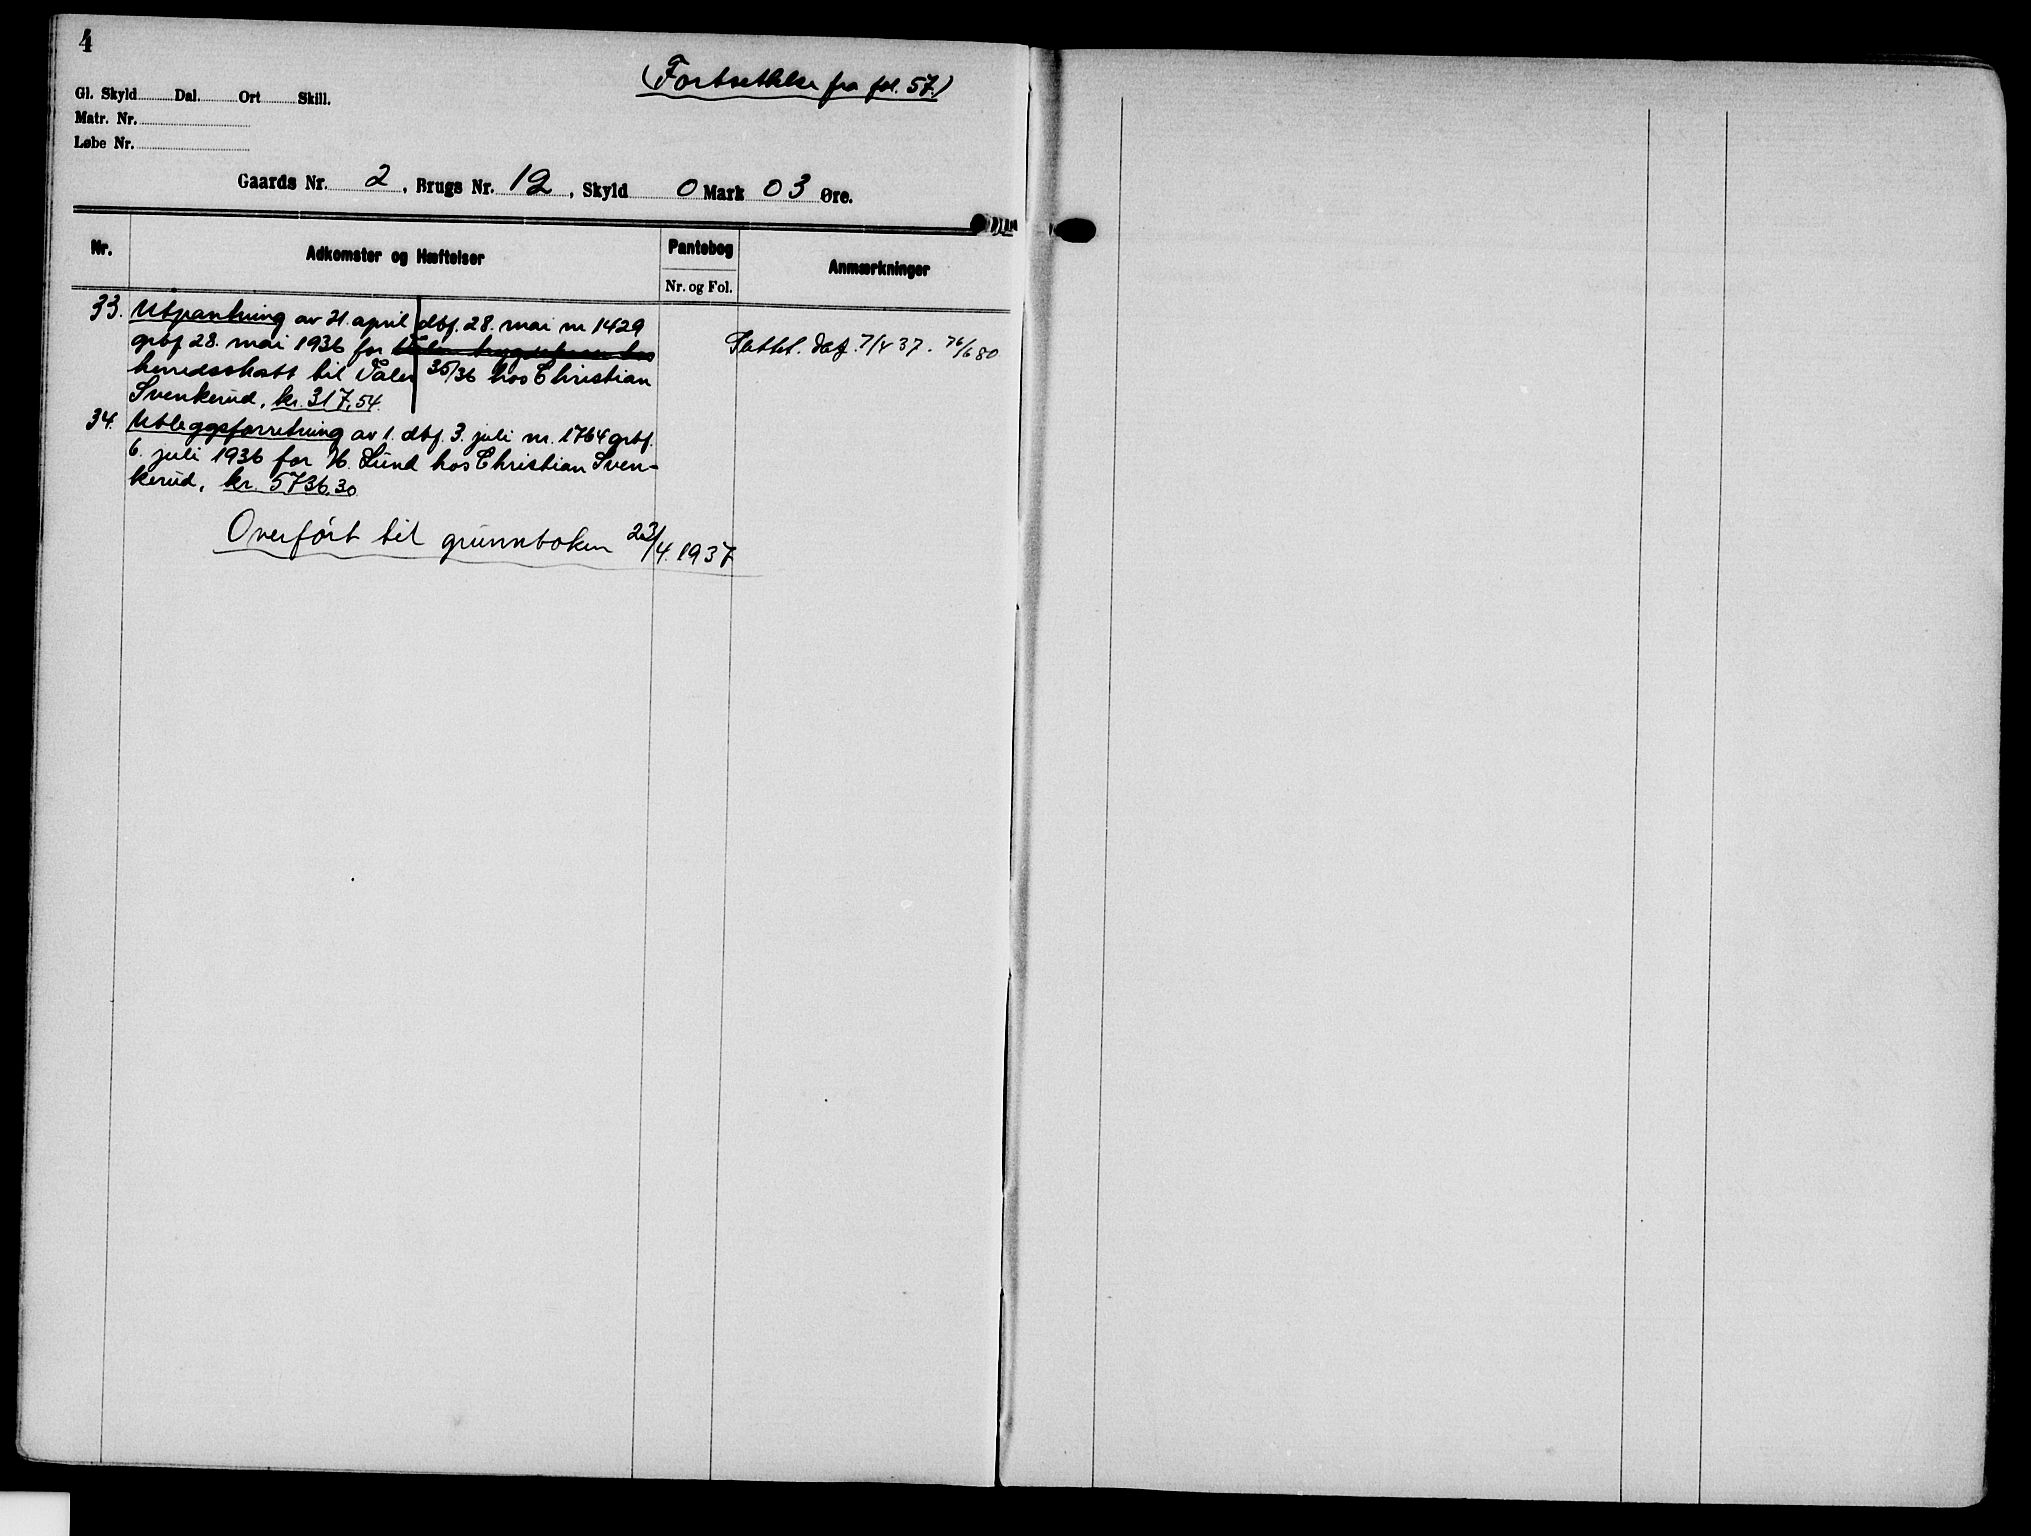 4
(Fortsettelse fra fol. 57.)
Gl. Skyld Dal. Ort Skill.
Matr. Nr.
Løbe Nr.
Gaards Nr. 2, Brugs Nr. 12, Skyld 0 Mark 03 Øre.
Nr. Adkomster og Hæftelser Pantebog Anmærkninger
Nr. og Fol.
33. Utpantning av 21. april dbf. 28. mai nr 1429
grbf 28. mai 1936 for
herredsskatt til Våler 35/36 hos Christian
Svenkerud, kr. 317,54.
Slettet. dbf. 7/4 37. 76/680
34. Utleggsforretning av 1. dbf. 3. juli nr. 1764 grbf.
6. juli 1936 for H. Lund hos Christian Sven-
kerud, kr. 5736,30
Overført til grunnboken 23/4. 1937